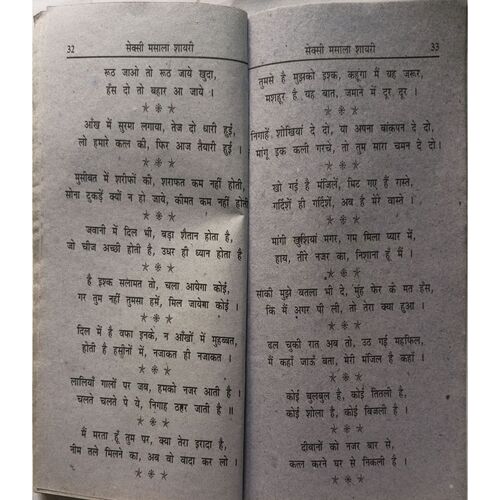 32 सेक्सी मसाला शायरी
रूठ जाओ तो रूठ जाये खुदा,
हँस दो तो बहार आ जाये ।
आँख में सुरमा लगाया, तेज दो धारी हुई,
लो हमारे कत्ल की, फिर आज तैयारी हुई ।
मुसीबत में शरीफों की, शराफत कम नहीं होती,
सोना टुकड़ें क्यों न हो जाये, कीमत कम नहीं होती
जवानी में दिल भी, बड़ा शैतान होता है,
जो चीज अच्छी होती है, उधर ही ध्यान होता है
है इश्क सलामत तो, चला आयेगा कोई,
गर तुम नहीं तुमसा हमें, मिल जायेगा कोई ।
दिल में है वफा इनके, न आँखों में मुहब्बत,
होती है हसीनों में, नजाकत ही नजाकत ।
लालियाँ गालों पर जब, हमको नजर आती है ।
चलते चलते पे ये, निगाह ठहर जाती है ॥
मैं मरता हूँ तुम पर, क्या तेरा इरादा है,
नीम तले मिलने का, अब वो वादा कर लो ।
सेक्सी मसाला शायरी 33
तुमसे है मुझको इश्क, कहूंगा मैं यह जरूर,
मशहूर है यह बात, जमाने में दूर दूर ।
निगाहें, शोखियां दे दो, या अपना बांकपन दे दो,
मांगू इक कली गरचे, तो तुम सारा चमन दे दो।
खो गई है मंजिलें, मिट गए हैं रास्ते,
गर्दिशें ही गर्दिशें, अब है मेरे वास्ते ।
मांगी खुशियां मगर, गम मिला प्यार में,
हाय, तीरे नजर का, निशाना हूँ मैं ।
साकी मुझे बतला भी दे, मुंह फेर के मत हँस,
कि मैं अगर पी ली, तो तेरा क्या हुआ ।
ढल चुकी रात अब तो, उठ गई महफिल,
मैं कहाँ जाऊँ बता, मेरी मंजिल है कहाँ ।
कोई बुलबुल है, कोई तितली है,
कोई शोला है, कोई बिजली है ।
दीवानों को नजर मार से,
कत्ल करने घर से निकली है ।